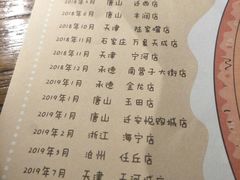 2018年5月 唐山 迁西店
2018年6月 唐山 丰润店
2018年10月 天津
2018年11月 石家庄 万象天成店
2018年11月 天津 宁河店
2018年12月 承德 南营子大街店
2019年1月 承德 金龙店
2019年1月 唐山 玉田店
2019年1月 唐山 迁安悦购城店
2019年2月 浙江 海宁店
2019年3月 沧州 任丘店
2019年7月 天津